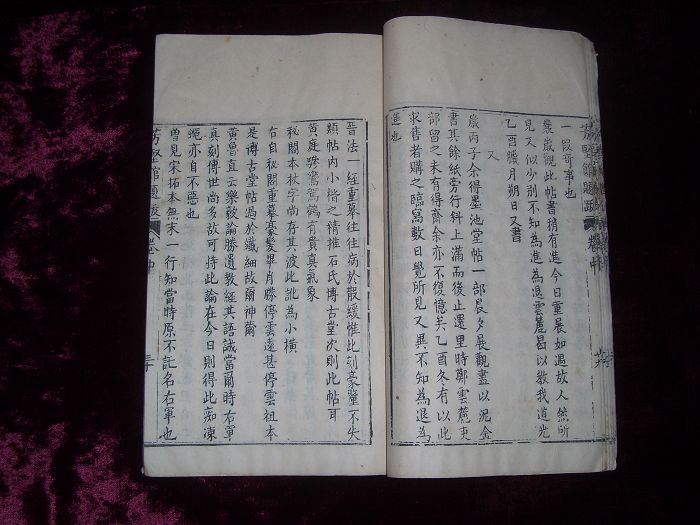 一段奇事也
歲歲觀此帖書稍有進今日重展如遇故人然所
見又似少別不知為進為退雲麓曷以教我道光
乙酉臘月朔日又書
又
歲丙子余得墨池堂帖一部晨夕展觀盡以泥金
書其餘紙旁行斜上滿而後止還里時鄭雲麓吏
部留之未有得齋余亦不復憶矣乙酉冬有以此
求售者購之臨寫數日覺所見又異不知為退為
進也
芳堅館題跋 卷中
晉法一經重摹往往病於散緩惟此刻豪釐不失
類帖內小楷之精推石氏博古堂次則此帖耳
黃庭驂鸞駕鶴有貴真氣象
秘閣本杖字尚存其波此訛為小橫
右自秘閣重摹豪髮畢肖勝停雲遠甚停雲祖本
是博古堂帖過於纖細故爾神爾
黃魯直云樂毅論勝遺教經其語誠當爾時右軍
真刻傳世尚多故可持此論在今日則得此痴凍
蠅亦自不惡也
曾見宋拓本無末一行知當時原不託名右軍也
芳堅館題跋 卷中 三十